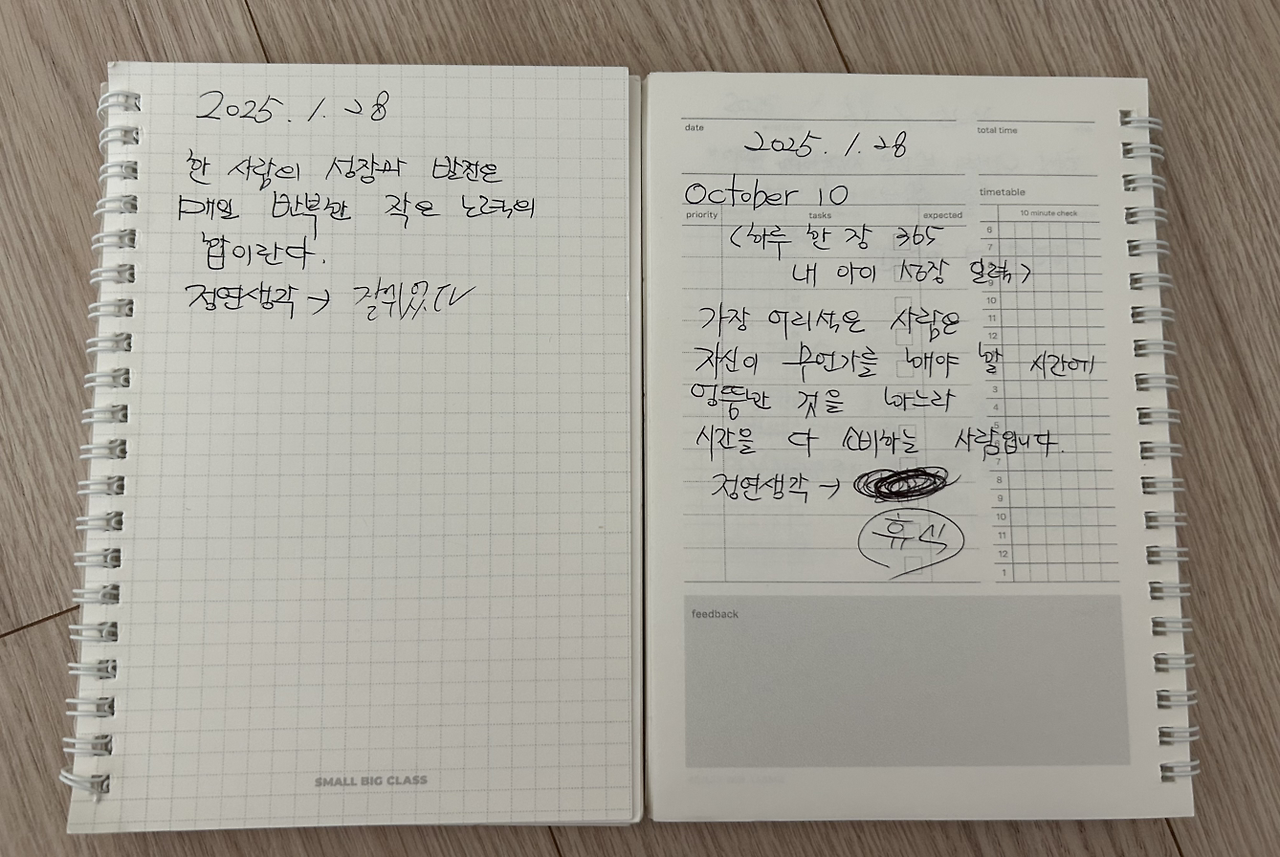 2025. 1. 28
한 사람의 성장과 발전은
매일 반복한 작은 노력의
합이란다.
정연생각 → 잘쉬었다
SMALL BIG CLASS
date
2025. 1. 28
total time
October 10
timetable
priority tasks expected
10 minute check
<하루 한 장 365
내 아이 성장 일력>
가장 어리석은 사람은
자신이 무언가를 해야 할 시간에
엉뚱한 것을 하느라
시간을 다 소비하는 사람입니다.
정연생각 →
휴식
6
7
9
10
11
12
3
4
5
6
7
8
9
10
11
12
1
feedback